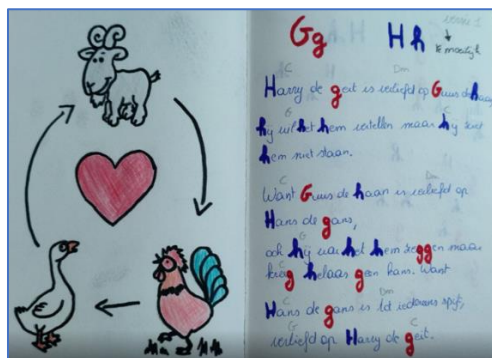 Gg Hh
te moeilijk
C Dm
Harry de geit is verliefd op Guus de haan
G C
hij wil het hem vertellen maar hij ziet
hem niet staan.
C Dm
Want Guus de haan is verliefd op
Hans de gans,
G
ook hij wou het hem zeggen maar
C
kreeg helaas geen kans. Want
C Dm
Hans de gans is tot iedereens spijt,
G C
verliefd op Harry de geit.